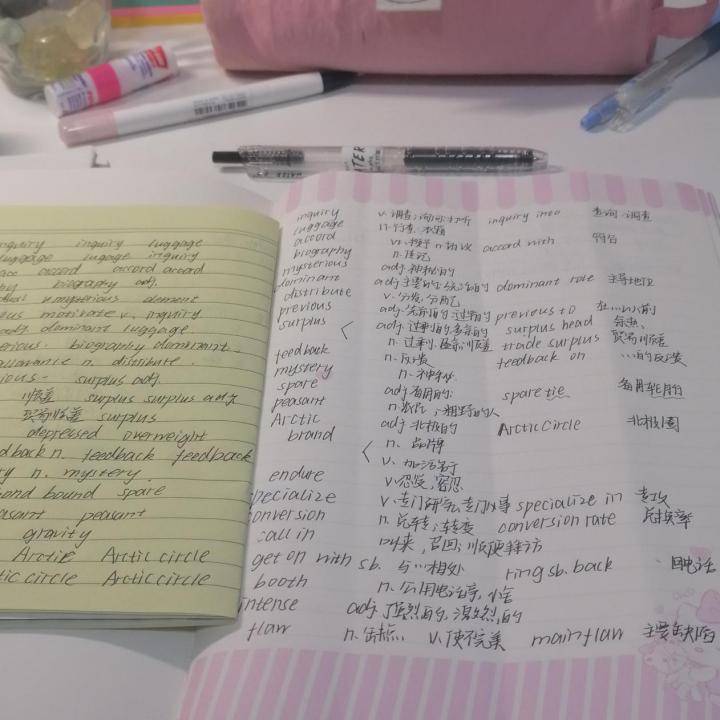 nquiry inquiry luggage
luggage lugage inquiry
accord accord accord
biography adj.
mysterious element
motivate v. inquiry
adj. dominant luggage
biography dominant
allowance n. distribute.
surplus adj.
顺差 surplus surplus adj
贸易顺差 surplus
depressed overweight
dback n. feedback feedback
n. mystery
bound spare
asant peasant
gravity
Arctic Arctic circle
tic circle Arctic circle
inquiry v. 调查;询问;打听 inquiry into 查询 调查
luggage n. 行李.
accord vt. n. 协议 accord with 符合
biography n. 传记
mysterious adj. 神秘的
dominant adj. 主要的 dominant role 主导地位
distribute v. 分发,分配
previous adj. 先前的 previous to 在……以前
surplus adj. 过剩的 surplus head
n. trade surplus 贸易顺差
feedback n. 反馈 feedback on ……的反馈
mystery n.
spare adj. 备用的 spare tie 备用轮胎
peasant n.
Arctic adj. 北极的 Arctic Circle 北极圈
brand n. 品牌
v.
endure v. 忍受,容忍
specialize v. 专门研究;专门从事 specialize in 专攻
onversion n. 转变 conversion rate
call in 叫来,召回;顺便拜访
get on with sb. 与…相处 ring sb. back 回电话
booth n. 公用电话亭,
intense adj. 强烈的,激烈的
flaw n. 缺点 v. 使不完美 main flaw 主要缺陷